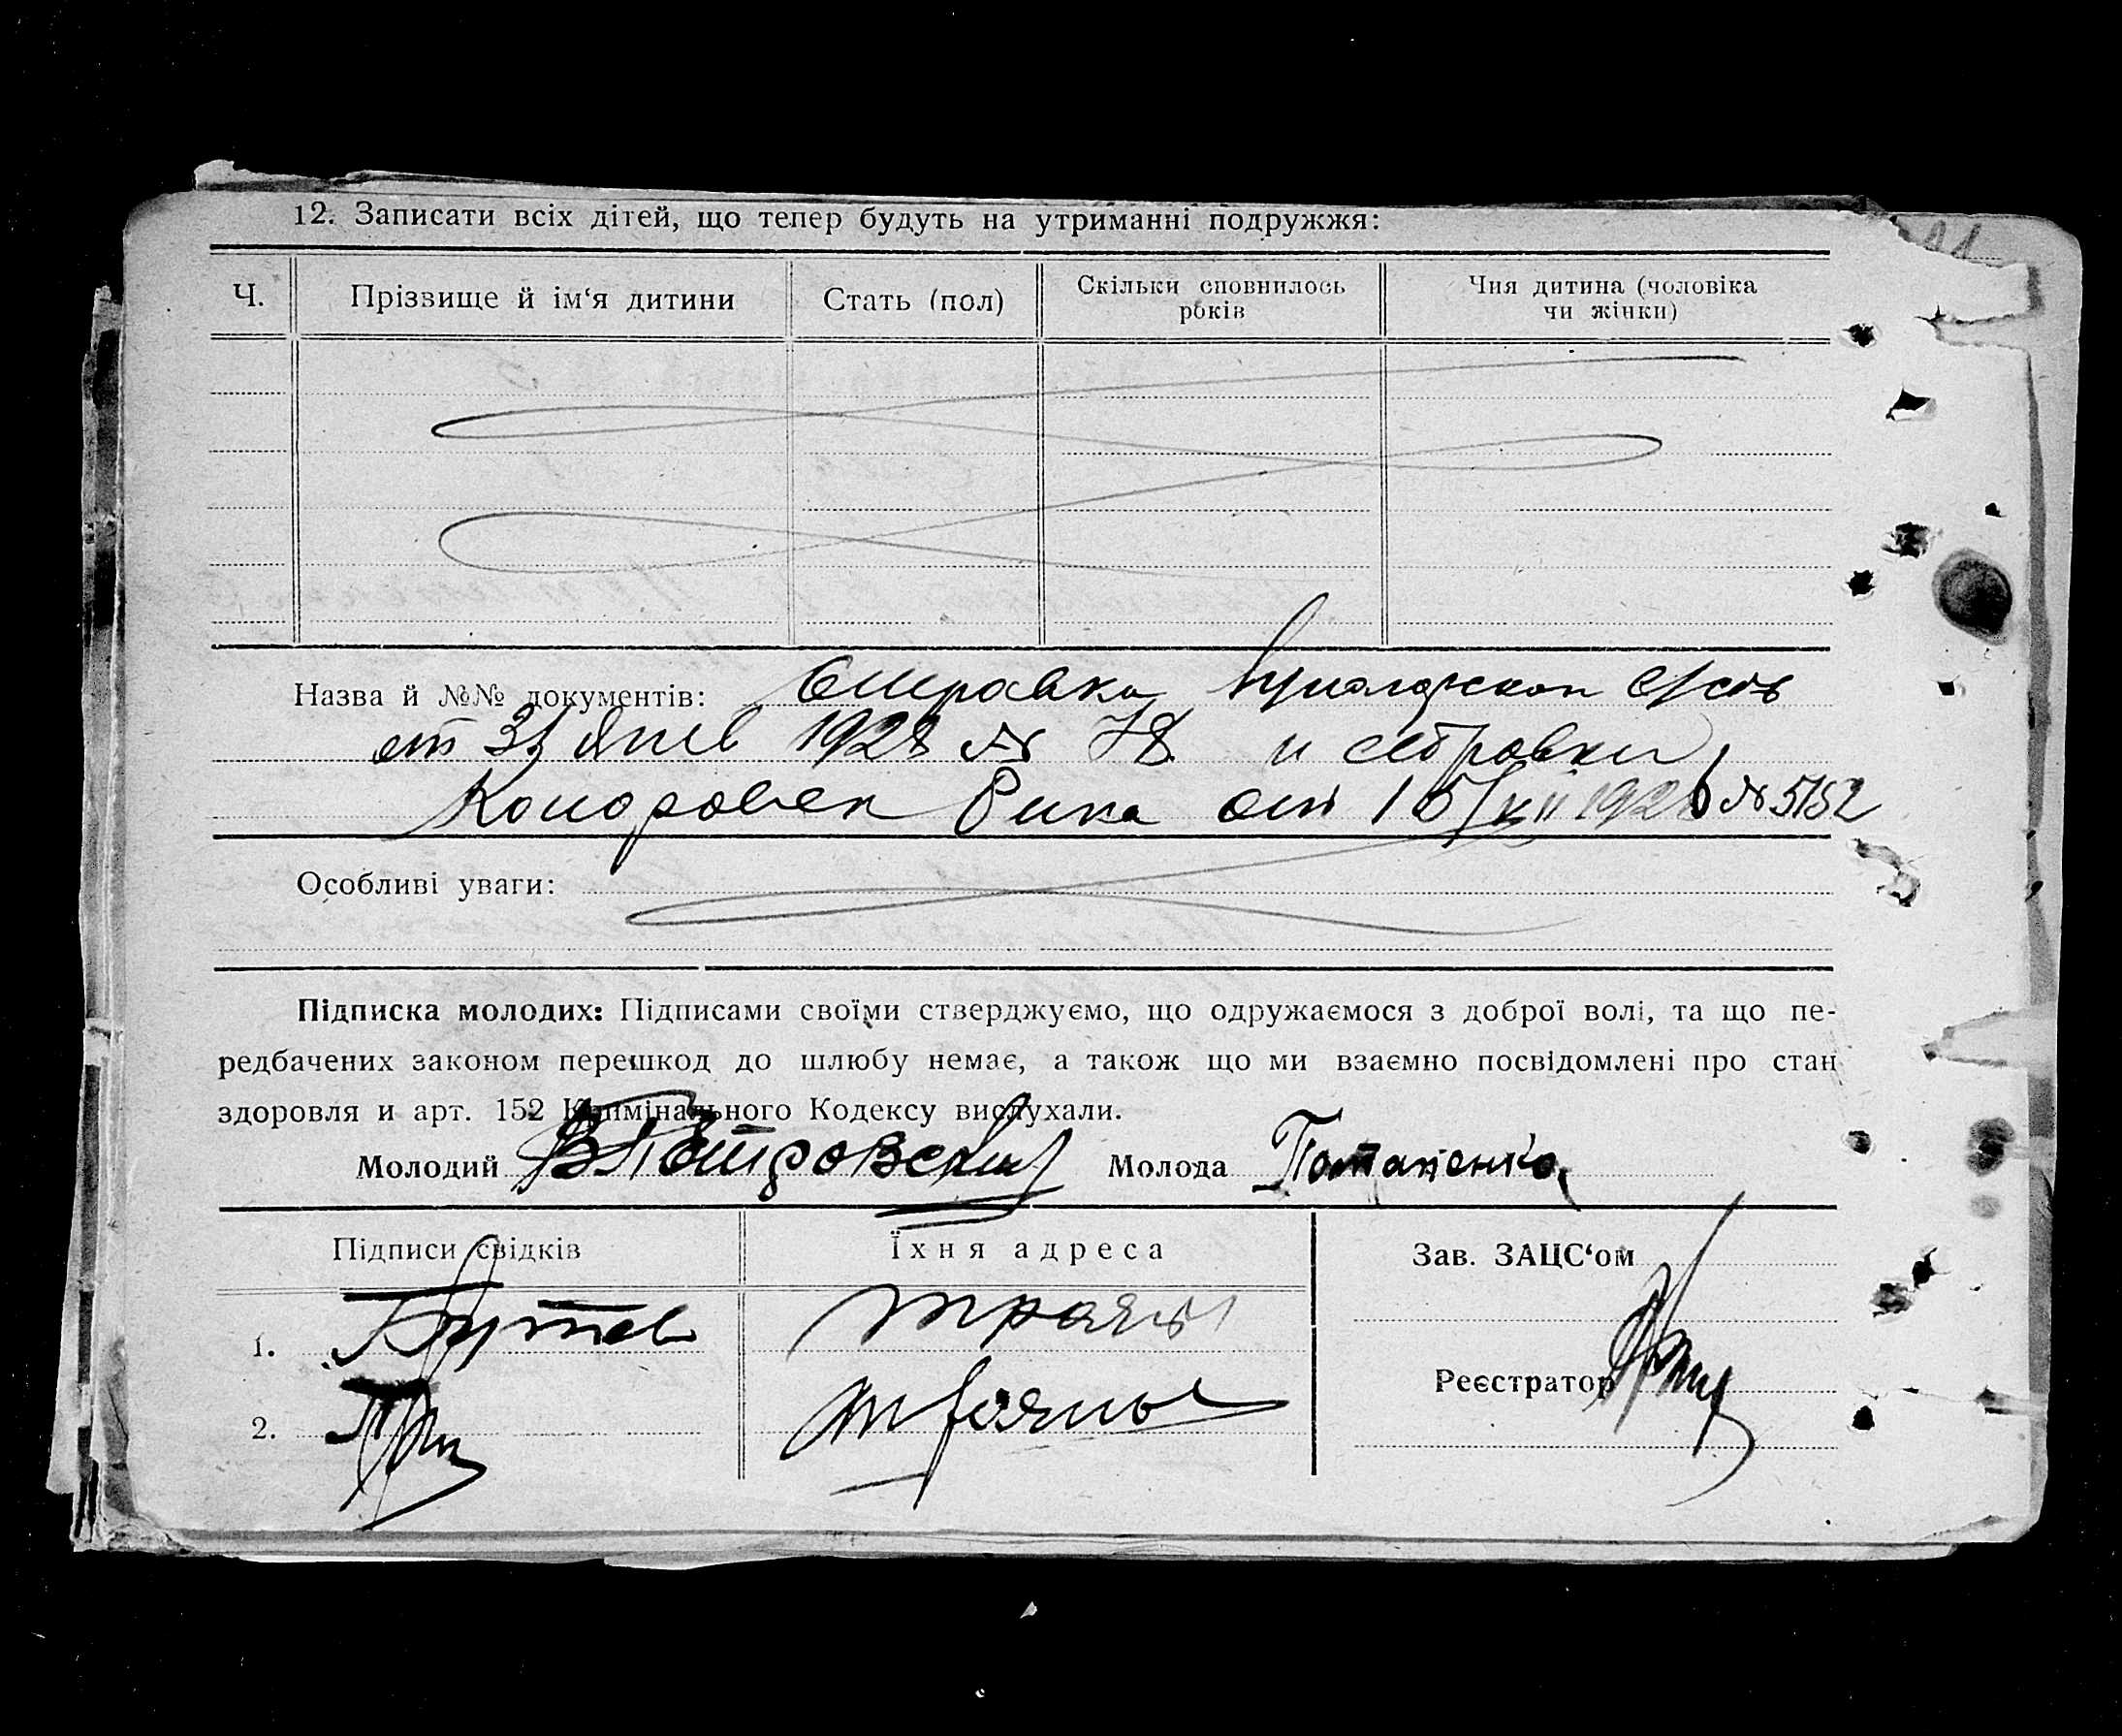 12. Записати всіх дітей, що тепер будуть на утриманні подружжя:
Ч. Прізвище й ім‘я дитини Стать (пол) Скільки сповнилось років Чия дитина (чоловіка чи жінки)
Назва й №№ документів: Справка
от 31 Янв 1928 № 78 и справки
Рика от 15/XII 1926 № 5152
Особливі уваги:
Підписка молодих: Підписами своїми стверджуємо, що одружаємося з доброї волі, та що пе-
редбачених законом перешкод до шлюбу немає, а також що ми взаємно посвідомлені про стан
здоровля и арт. 152 Кримінального Кодексу вислухали.
Молодий ВПетровский Молода Потапенко
Підписи свідків Їхня адреса Зав. ЗАЦС‘ом
1. Трояны
Реєстратор
2. Трояны